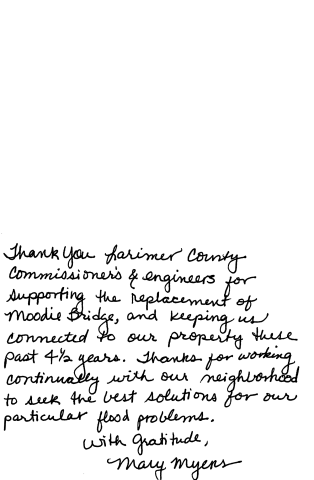 Thank You Larimer County
Commissioner's & engineers for
supporting the replacement of
Moodie Bridge, and keeping us
connected to our property these
past 4½ years. Thanks for working
continually with our neighborhood
to seek the best solutions for our
particular flood problems.
With Gratitude,
Mary Myers